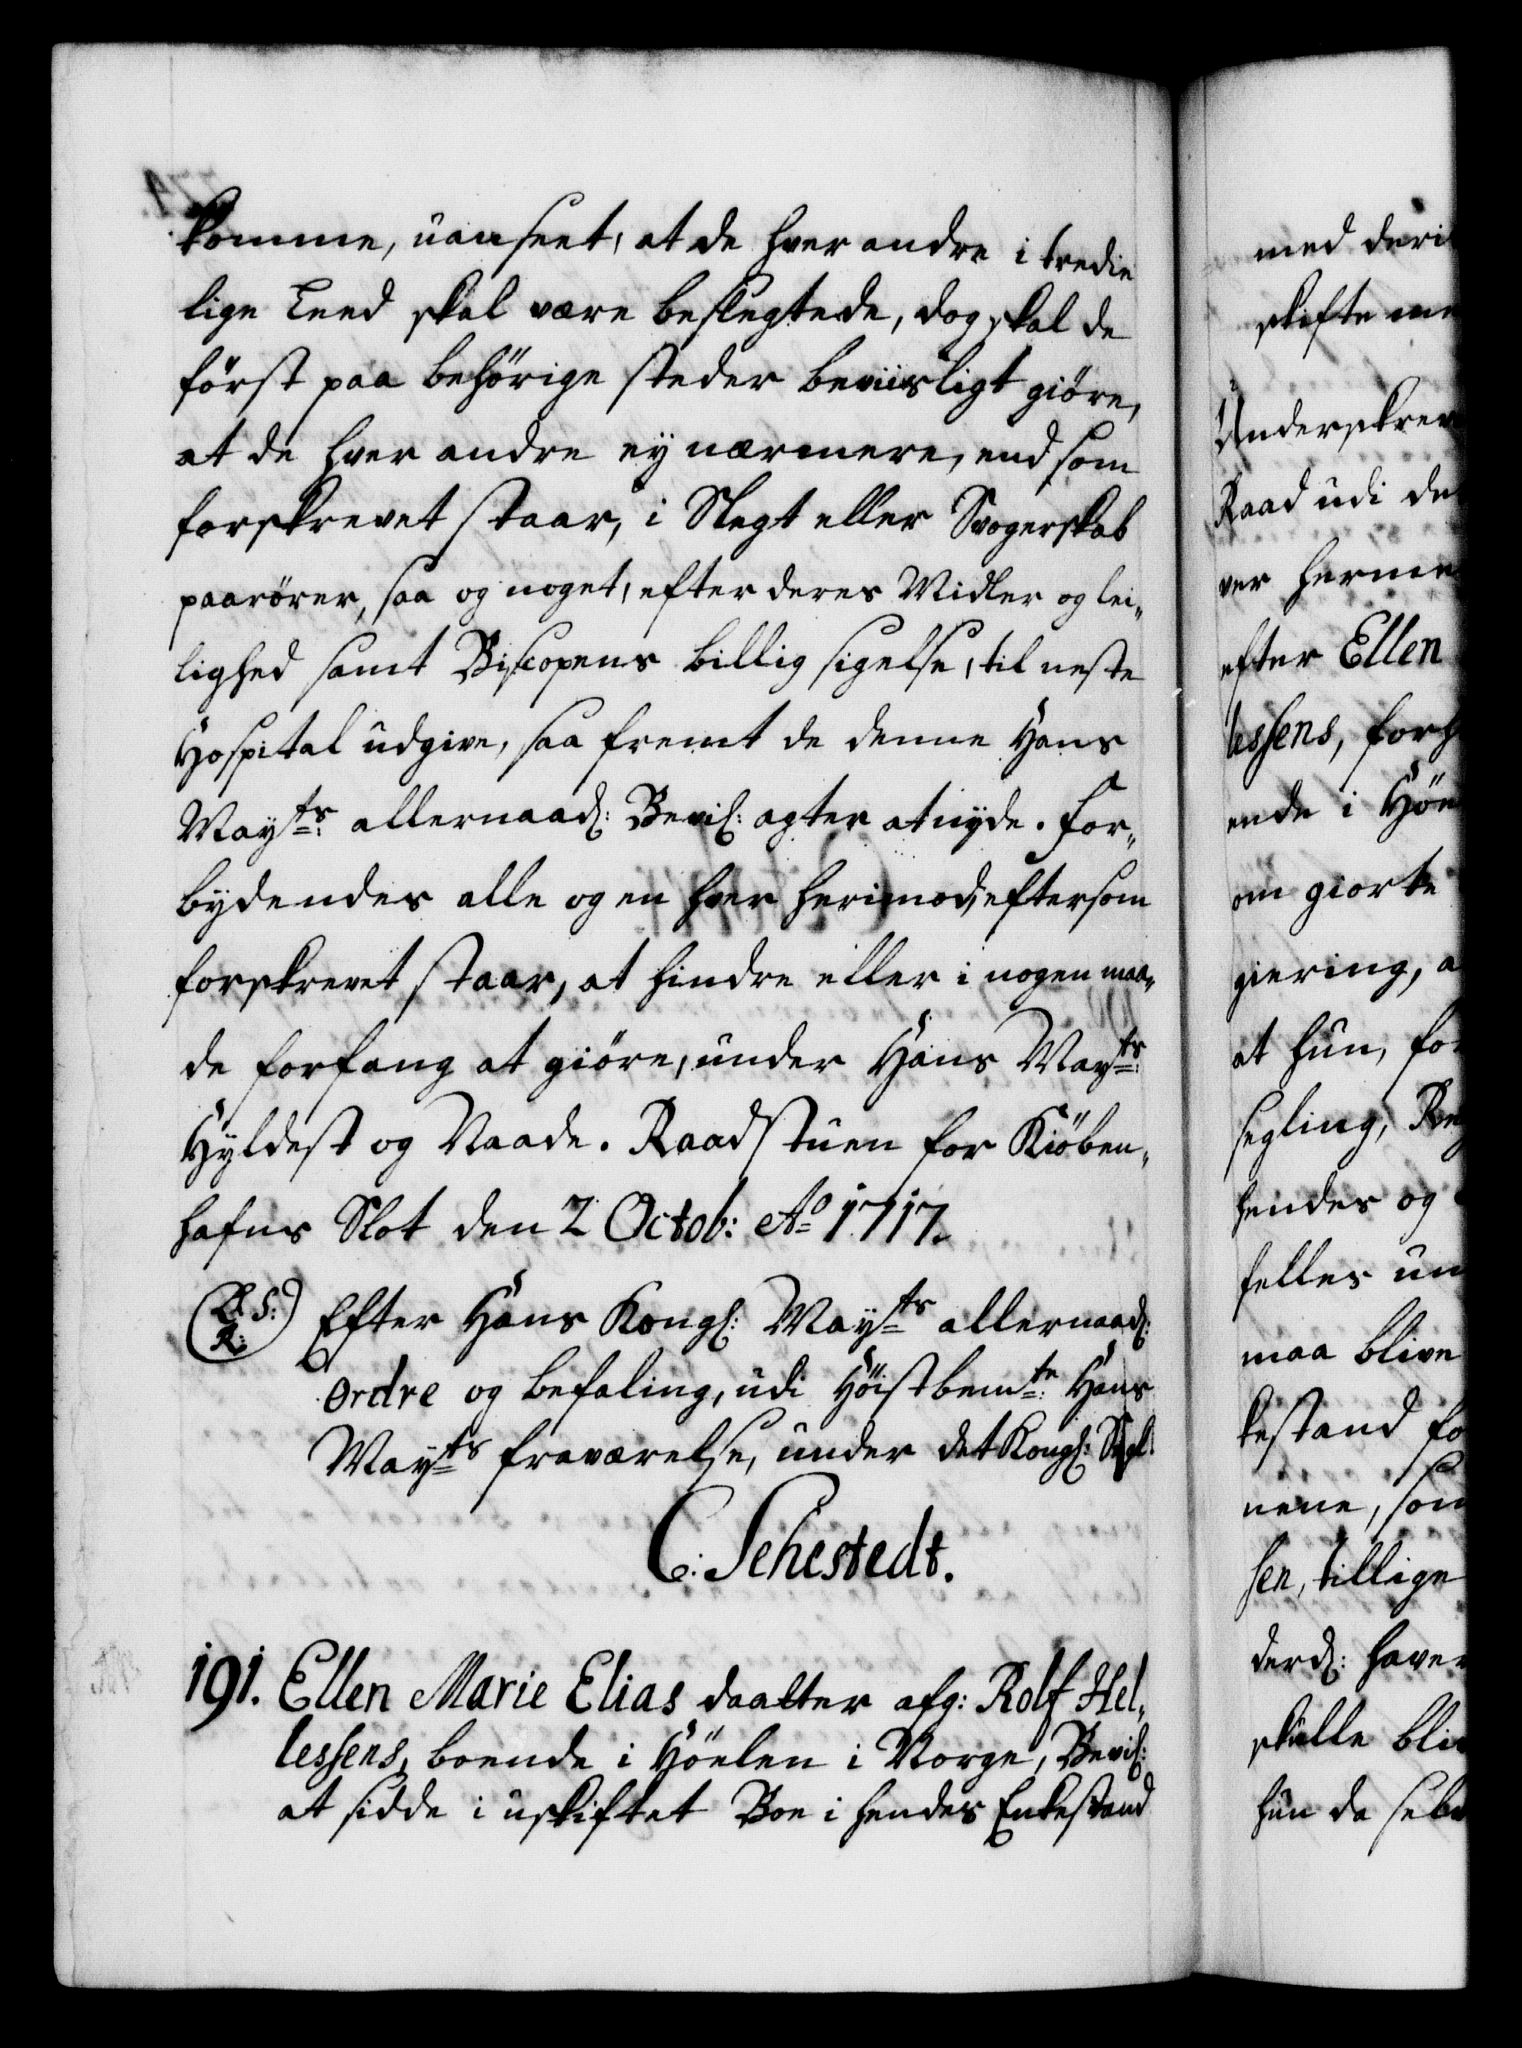 komme, uanseet, at de hver andre i tredie
lige Leed skal være beslegtede, dog skal de
først paa behörige steder beviisligt giöre,
at de hver andre ey nærmere, end som
forskrevet staar, i Slegt eller Svogerskab
paarörer, saa og noget, efter deres Midler og lei„
lighed samt Biscopens billig sigelse, til neste
Hospital udgive, saa fremt de denne Hans
Mayts: allernaad: Bevil: agter at nyde. For„
bydendes alle og en hver herimod, eftersom
forskrevet staar, at hindre eller i nogen maa„
de forfang at giöre, under Hans Mayts:
Hyldest og Naade. Raadstuen for Kiöben„
hafns Slot den 2 Octob: Ao 1717.
(L: S: R:) Efter Hans Kongl: Mayts allernaad:
Ordre og befaling, udi Höistbemte: Hans
Mayts fraværelse, under det Kongl: Segl:
C: Sehestedt.
191. Ellen Marie Elias daatter afg: Rolf Hel„
lessens, boende i Höelen i Norge, Bevil:
at sidde i uskiftet Boe i hendes Enkestand
med deri
skifte me
Underskrev
Raad udi de
ver herme
efter Ellen
lessens, forh
ende i Höe
om giorte
giering, a
at hun, for
segling, Reg
hendes og
felles un
maa blive
kestand fo
nene, som
sen, tillige
derd: haver
skulle bliv
hun da selv